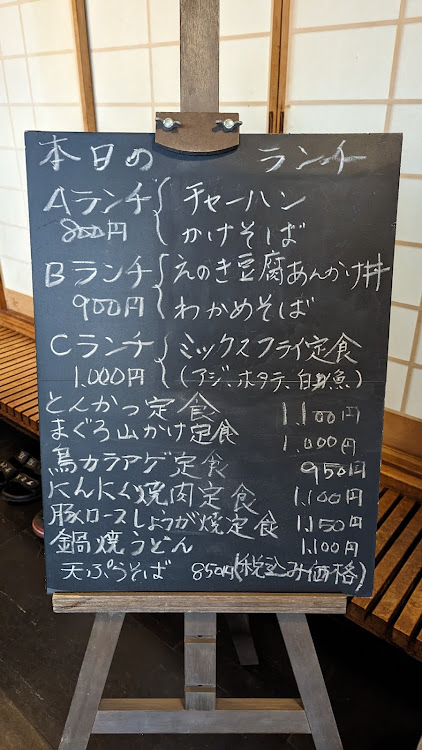 本日の ランチ
Aランチ チャーハン
800円 かけそば
Bランチ えのき豆腐あんかけ丼
900円 わかめそば
Cランチ ミックスフライ定食
1.000円 (アジ、ホタテ、白身魚)
とんかつ定食 1.100円
まぐろ山かけ定食 1.000円
鳥カラアゲ定食 950円
にんにく焼肉定食 1,100円
豚ロースしょうが焼定食 1,150円
鍋焼うどん 1,100円
天ぷらそば 850円(税込み価格)